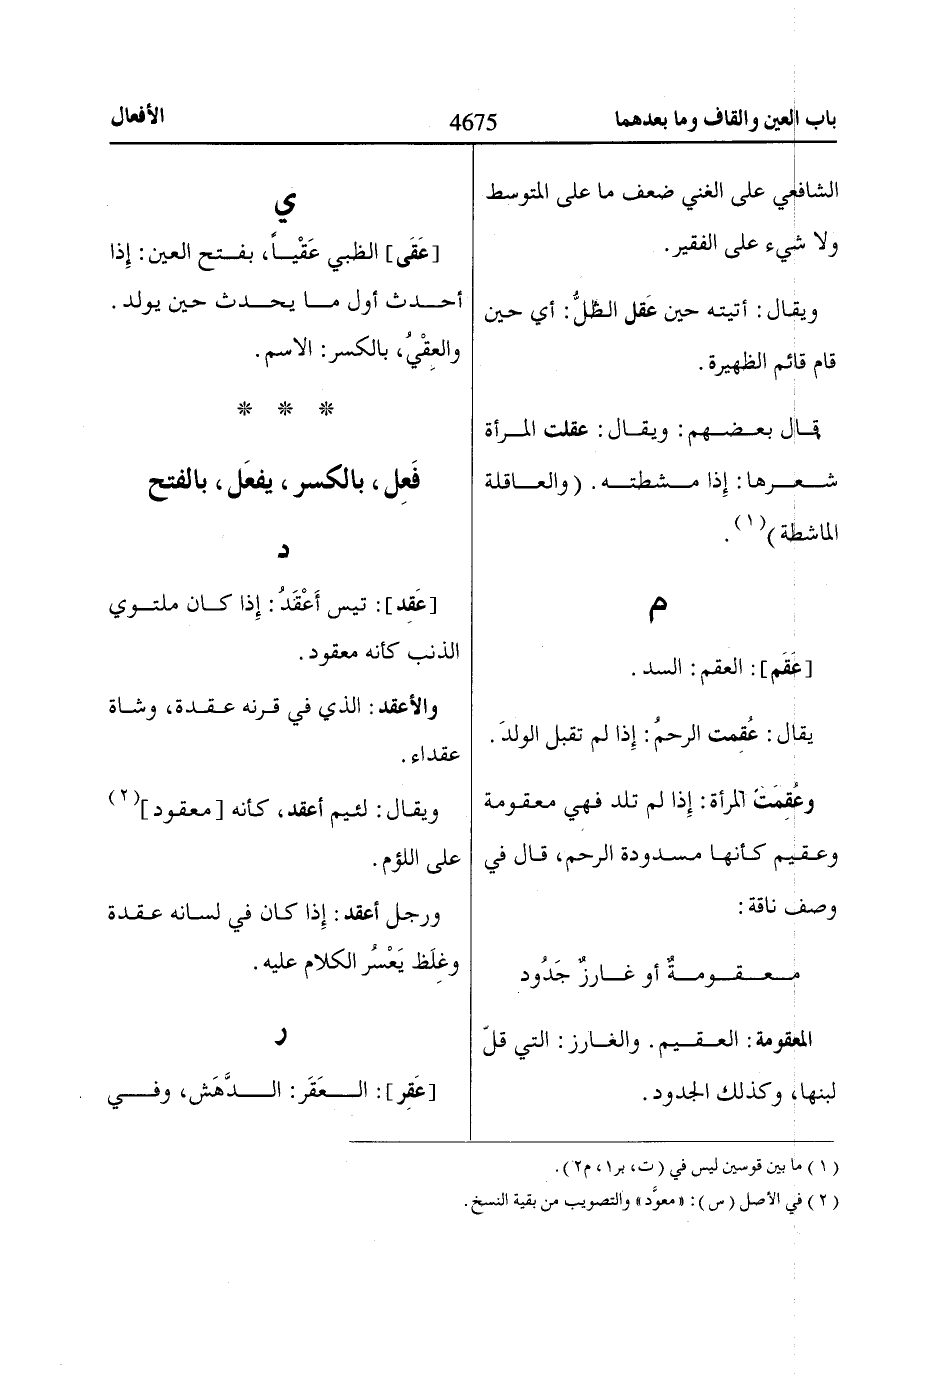 باب العين والقاف وما بعدهما
4675
الأفعال
الشافعي على الغني ضعف ما على المتوسط
ولا شيء على الفقير.
ويقال: أتيته حين عَقل الظّلُّ: أي حين
قام قائم الظهيرة.
قال بعضهم: ويقال: عقلت المرأة
شعرها: إذا مشطته. (والعاقلة
الماشطة)(١).
م
[عَقَم]: العقم: السد.
يقال: عُقِمت الرحمُ: إذا لم تقبل الولدَ.
وعُقِمَتَ المرأة: إذا لم تلد فهي معقومة
وعقيم كأنها مسدودة الرحم، قال في
وصف ناقة:
معقومةٌ أو غارزٌ جَدُود
المعقومة: العقيم. والغارز: التي قلّ
لبنها، وكذلك الجدود.
ي
[عَقَى] الظبي عَقْياً، بفتح العين: إذا
أحدث أول ما يحدث حين يولد.
والعِقْيُ، بالكسر: الاسم.
* * *
فَعِل، بالكسر، يفعَل، بالفتح
د
[عَقِد]: تيس أَعْقَدُ: إذا كان ملتوي
الذنب كأنه معقود.
والأعقد: الذي في قرنه عقدة، وشاة
عقداء.
ويقال: لئيم أعقد، كأنه [معقود](٢)
على اللؤم.
ورجل أعقد: إذا كان في لسانه عقدة
وغِلَظ يَعْسُر الكلام عليه.
ر
[عَقِر]: العَقَر: الدَّهَش، وفي
(١) ما بين قوسين ليس في (ت، بر١، م٢).
(٢) في الأصل (س): «معوَّد» والتصويب من بقية النسخ.